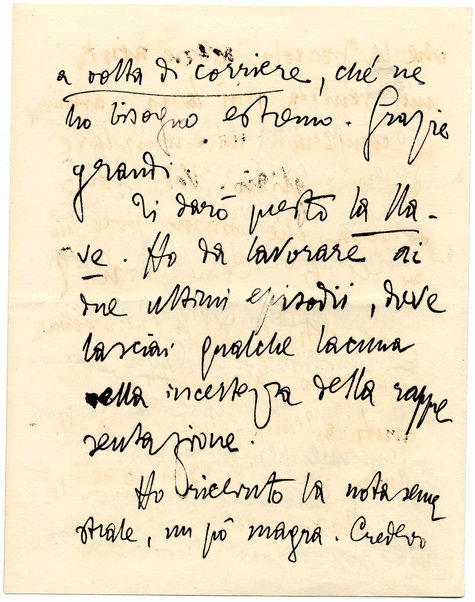 a volta di corriere, ché ne
ho bisogno estremo. Grazie
grandi.
Ti darò presto la Na-
ve. Ho da lavorare ai
due ultimi episodii, dove
lasciai qualche lacuna
nella incertezza della rappre
sentazione.
Ho ricevuto la nota seme
strale, un pò magra. Credevo